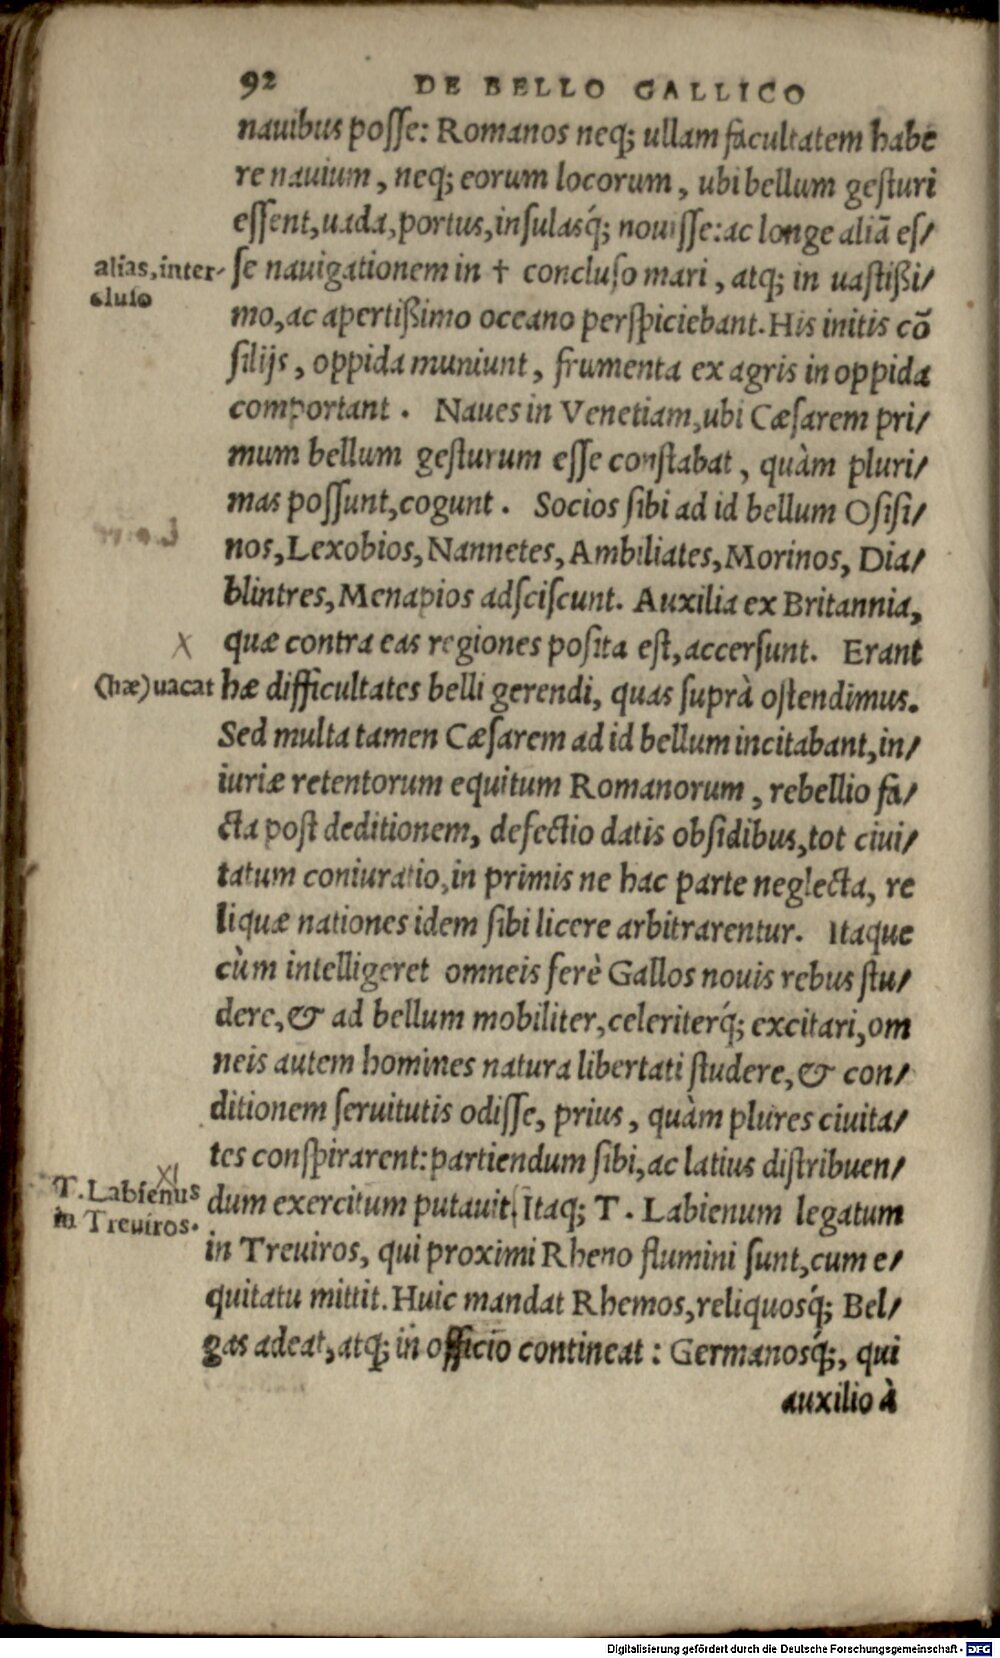 92 DE BELLO GALLICO
nauibus posse: Romanos neq; ullam facultatem habe
re nauium, neq; eorum locorum, ubi bellum gesturi
essent, uada, portus, insulasq́; nouisse: ac longe aliã es/
alias, inter-
cluso
se nauigationem in † concluso mari, atq; in uastißi/
mo, ac apertißimo oceano perspiciebant. His initis cõ
silijs, oppida muniunt, frumenta ex agris in oppida
comportant. Naues in Venetiam, ubi Cæsarem pri/
mum bellum gesturum esse constabat, quàm pluri/
mas possunt, cogunt. Socios sibi ad id bellum Osisi/
nos, Lexobios, Nannetes, Ambiliates, Morinos, Dia/
blintres, Menapios adsciscunt. Auxilia ex Britannia,
X
quæ contra eas regiones posita est, accersunt. Erant
(hæ) uacat
hæ difficultates belli gerendi, quas suprà ostendimus.
Sed multa tamen Cæsarem ad id bellum incitabant, in/
iuriæ retentorum equitum Romanorum, rebellio fa/
cta post deditionem, defectio datis obsidibus, tot ciui/
tatum coniuratio, in primis ne hac parte neglecta, re
liquæ nationes idem sibi licere arbitrarentur. Itaque
cùm intelligeret omneis ferè Gallos nouis rebus stu/
dere, & ad bellum mobiliter, celeriterq́; excitari, om
neis autem homines natura libertati studere, & con/
ditionem seruitutis odisse, prius, quàm plures ciuita/
tes conspirarent: partiendum sibi, ac latius distribuen/
XI
T. Labienus
in Treuiros.
dum exercitum putauit. Itaq; T. Labienum legatum
in Treuiros, qui proximi Rheno flumini sunt, cum e/
quitatu mittit. Huic mandat Rhemos, reliquosq́; Bel/
gas adeat, atq; in officio contineat: Germanosq́;, qui
auxilio à
Digitalisierung gefördert durch die Deutsche Forschungsgemeinschaft - DFG